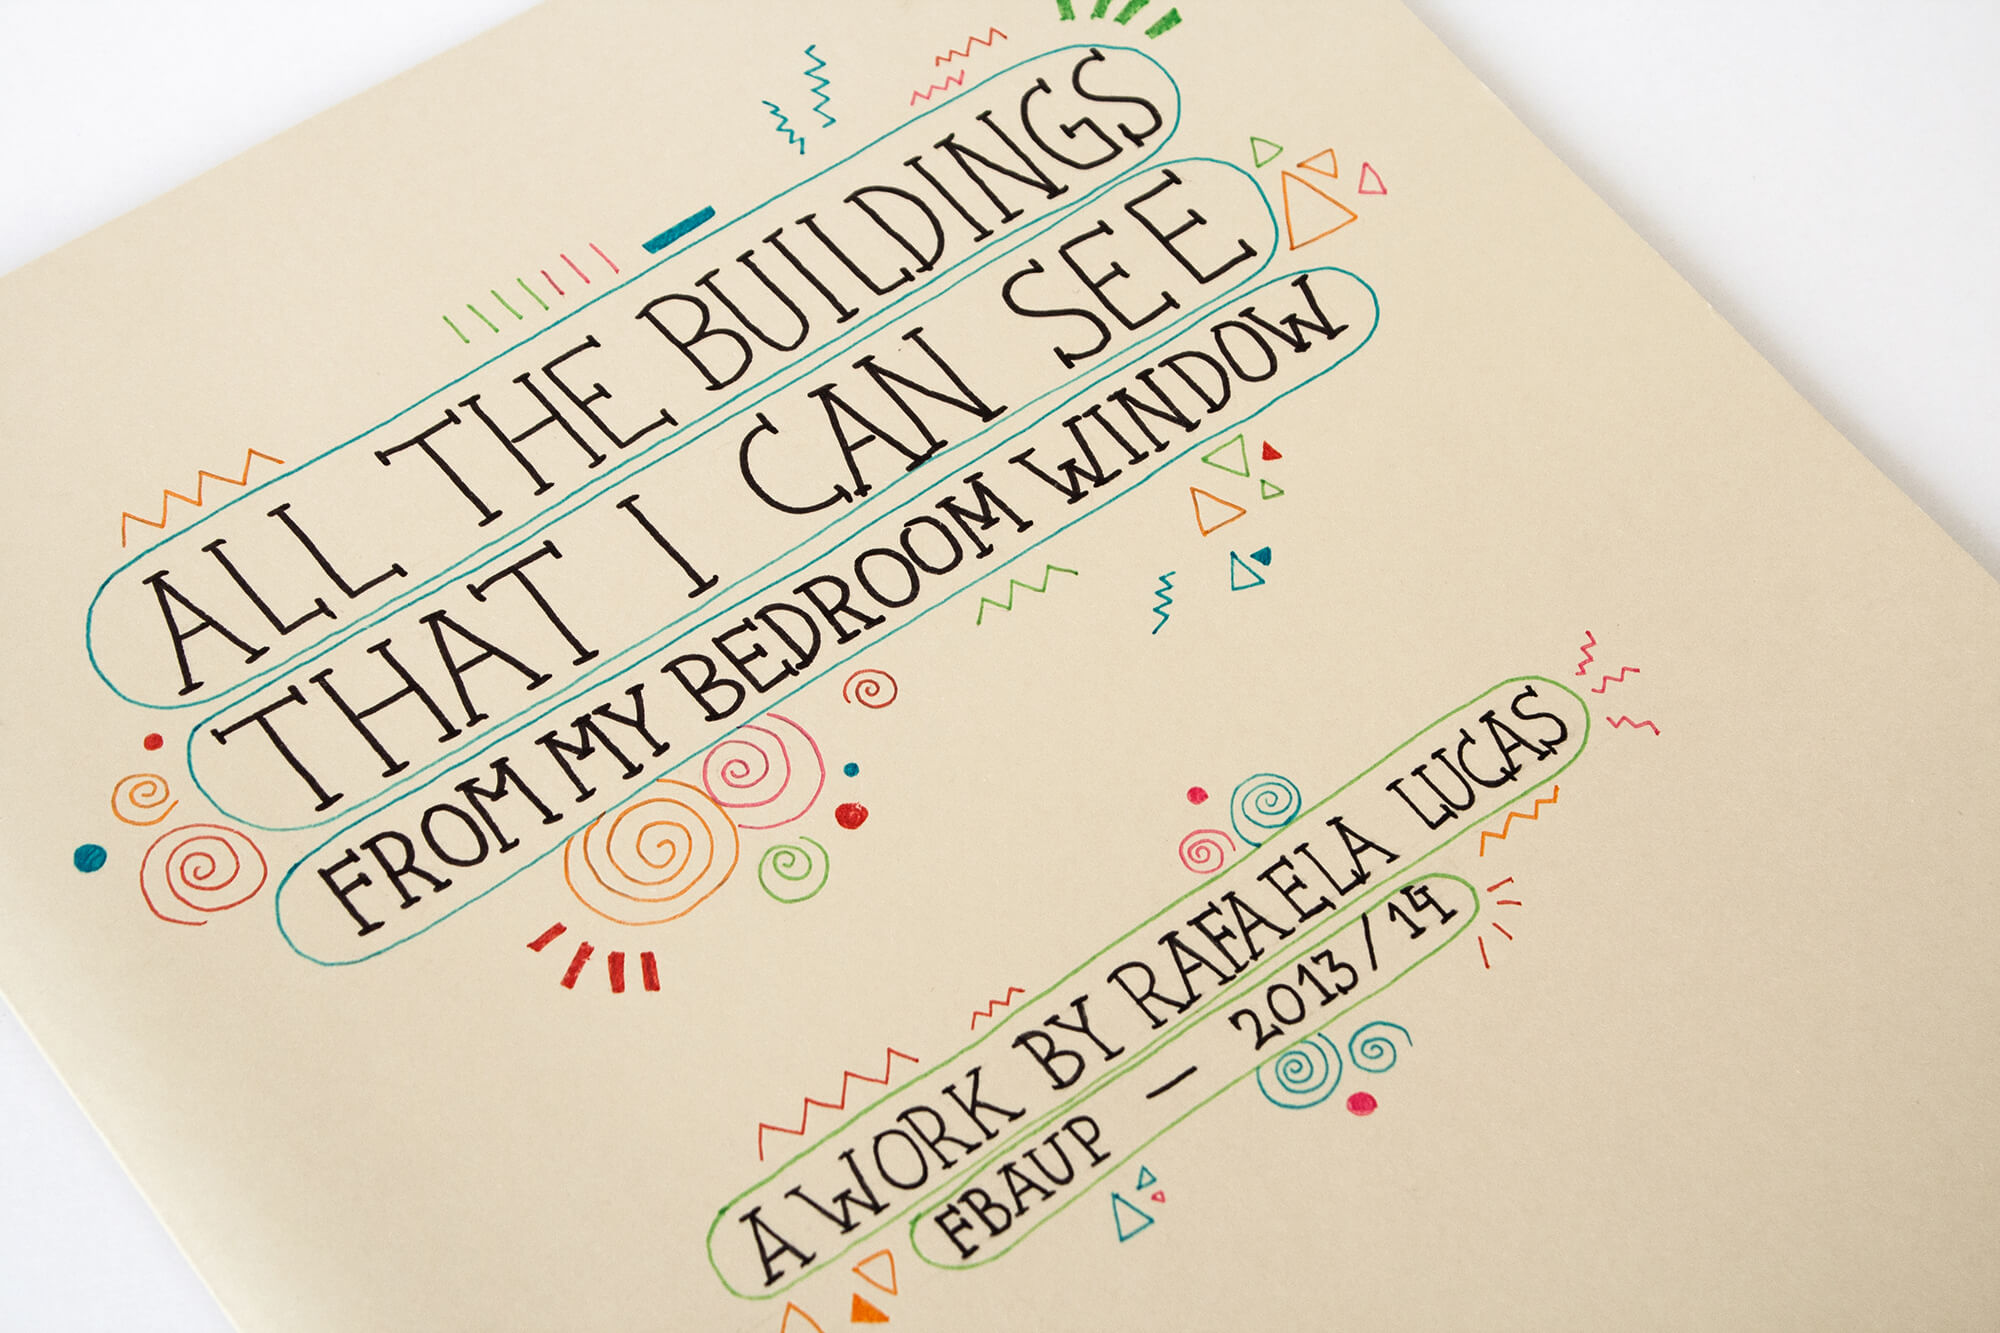 ALL THE BUILDINGS
THAT I CAN SEE
FROM MY BEDROOM WINDOW
A WORK BY RAFAELA LUCAS
FBAUP — 2013/14